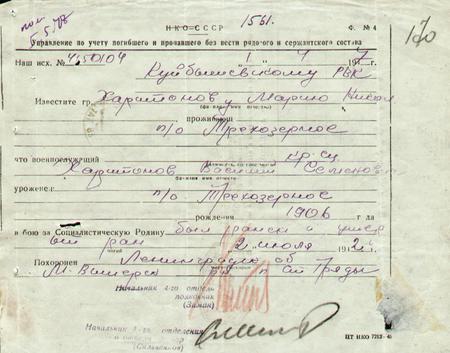 НКО-СССР
1561.
Ф. № 4
170
Управление по учету погибшего и пропавшего без вести рядового и сержантского состава
Наш исх. № 4/50104 1 " 4 194
Куйбышевскому РВК
Известите гр. Харитонову Марию
проживающ
п/о Трехозерное
что военнослужащий кр-ец
Харитонов Василий Семенов
уроженец
п/о Трехозерное
рождения 1906 г да
в бою за Социалистическую Родину был ранен и умер
от ран 2 июля 1942
Похоронен Ленинградск об
М. Вишерск р п ст Гряды
Начальник 4-го отдела
Начальник 1-го отделения